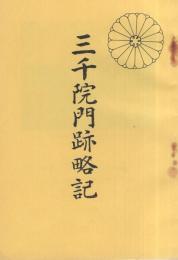 三千院門跡略記